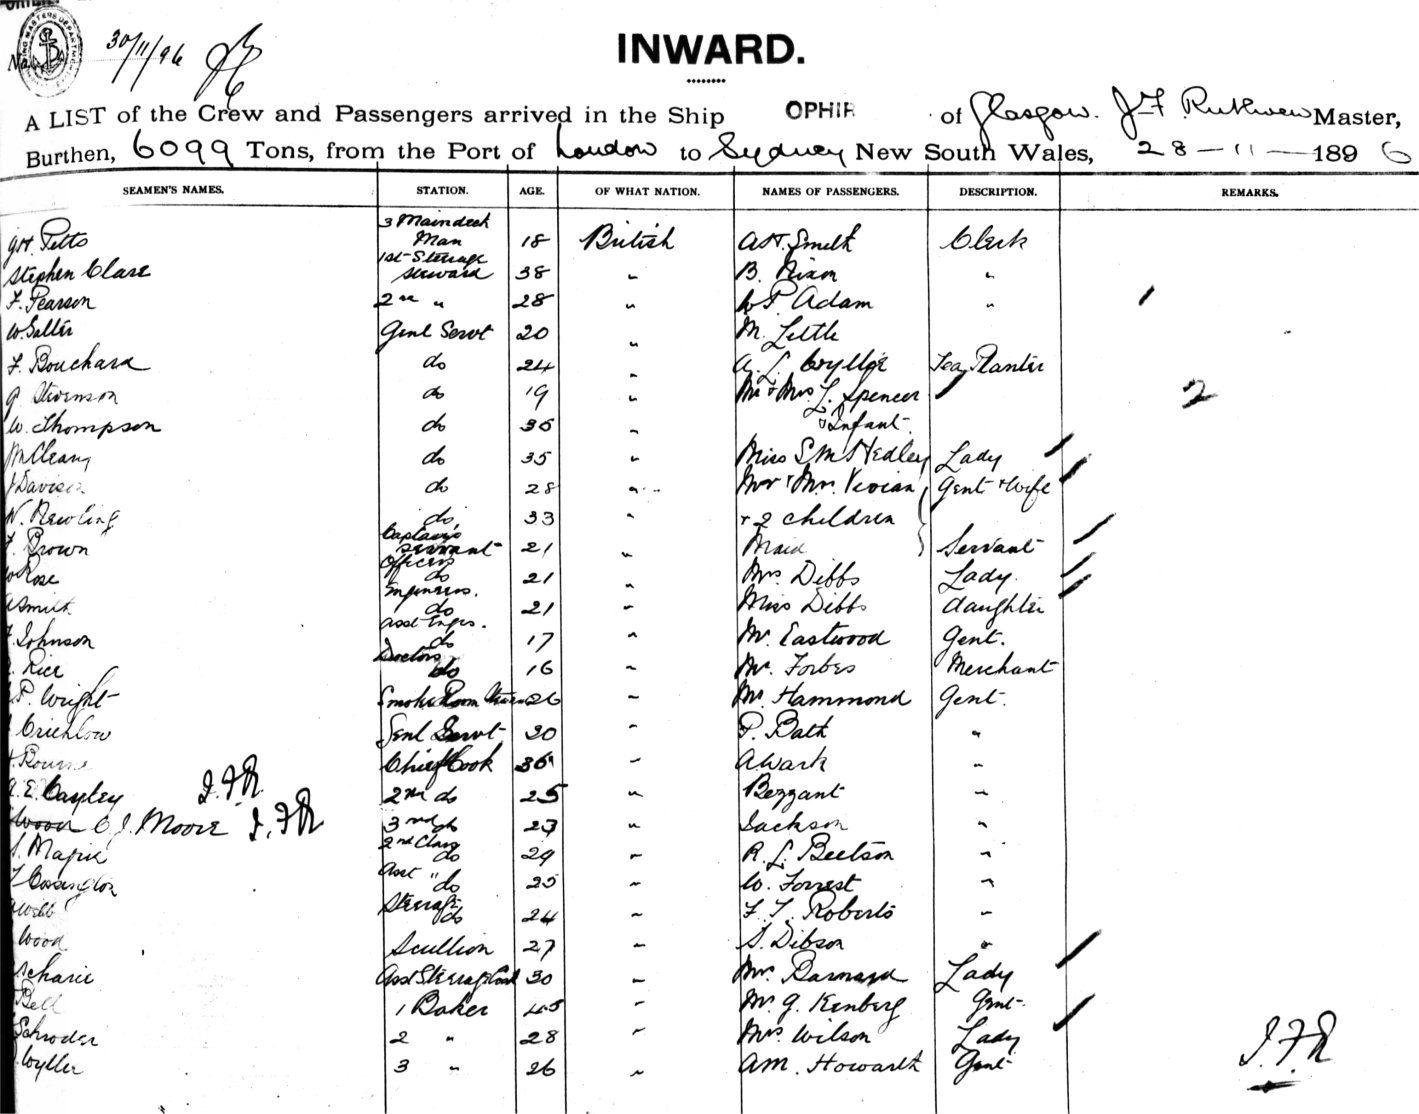 30/11/96
INWARD.
A LIST of the Crew and Passengers arrived in the Ship OPHIR of Glasgow. J F Ruthven Master,
Burthen, 6099 Tons, from the Port of London to Sydney New South Wales, 28 - 11 - 1896
SEAMEN'S NAMES. STATION. AGE. OF WHAT NATION. NAMES OF PASSENGERS. DESCRIPTION. REMARKS.
3 Maindeck
Petts Man 18 British A H. Smith Clerk
1st Steerage
Stephen Clare steward 38 " B. Nixon "
F. Pearson 2nd " 28 " W P Adam "
W Salter Genl Servt 20 " M. Little
F. Bouchard do 24 " A. L. Wyllie Tea Planter
Stevenson do 19 " Mr & Mrs L. Spencer 2
W. Thompson do 36 " & Infant.
McCleary do 35 " Miss S M Hedley Lady
J Davison do 28 " Mr & Mrs. Vivian Gent & Wife
N. Newling do, 33 " + 2 children
Captain's
F. Brown servant 21 " Maid Servant
Officers
W Rose do 21 " Mrs. Dibbs Lady.
Engineers.
A Smith do 21 " Miss Dibbs daughter
Asst Engrs.
F. Johnson do 17 " Mr. Eastwood Gent.
Doctors
Rice do 16 " Mr. Forbes Merchant
P. Wright Smoke Room 26 " Mr. Hammond Gent.
Crichlow Genl Servt 30 " P. Bath "
Bourne Chief Cook 36 " A Wark "
A. E. Cayley J. F. R. 2nd do 25 " Bezzant "
C J. Moore J. F. R. 3rd do 27 " Jackson "
2nd Class
do 29 " R. L. Beetson "
Asst " do 25 " W. Forrest "
Steerage
Webb do 24 " F. T. Roberts "
Wood Scullion 27 " S. Dibson "
Asst Steerage Cook 30 " Mrs Barnard Lady
Bell 1 Baker 45 " Mr. G. Kenberg Gent.
Schroder 2 " 28 " Mrs. Wilson Lady
Wyller 3 " 26 " A M. Howarth Gent
J. F. R.